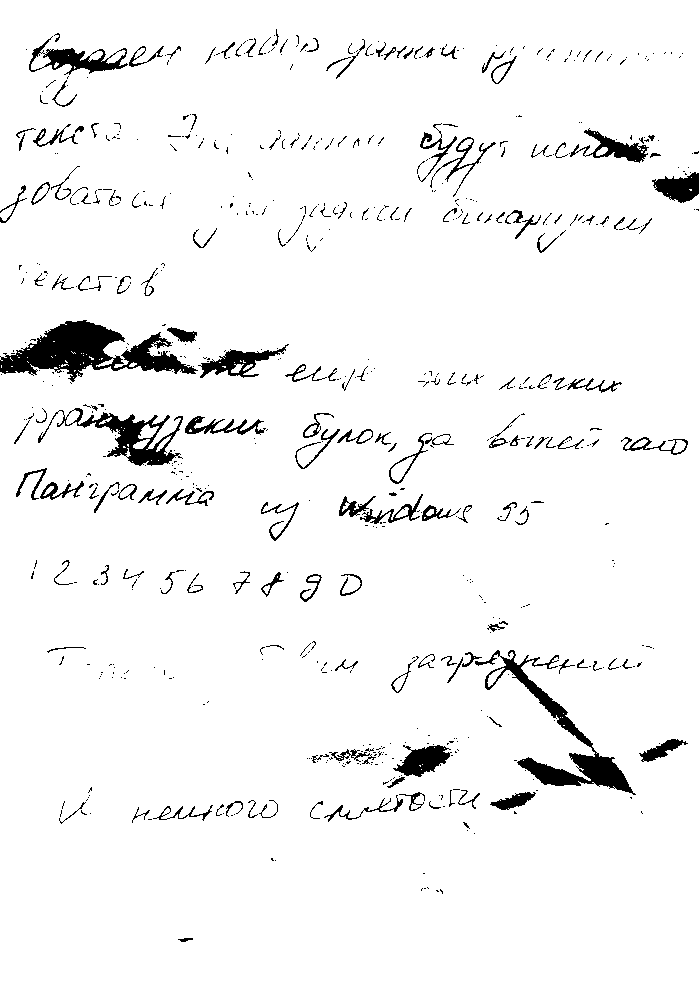 Создаем набор данных рукописн
текста. Эти данные будут исполь-
зоваться для задачи бинаризации
текстов
же еще этих мягких
французских булок, да выпей чаю
Панграмма из Windows 95
1 2 3 4 5 6 7 8 9 0
загрязнений
И немного смятости